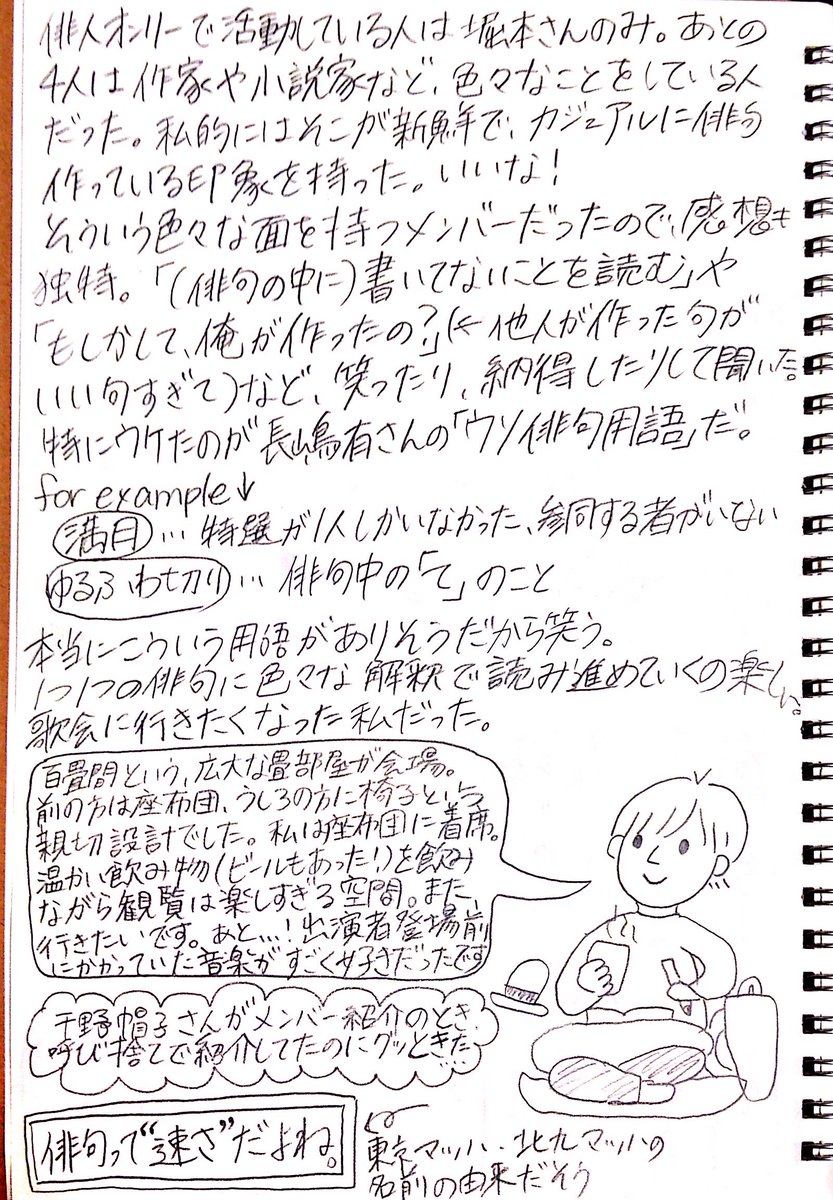 俳人オンリーで活動している人は堀本さんのみ。あとの
4人は作家や小説家など、色々なことをしている人
だった。私的にはそこが新鮮で、カジュアルに俳句
作っている印象を持った。いいな!
そういう色々な面を持つメンバーだったので、感想も
独特。「(俳句の中に)書いてないことを読む」や
「もしかして、俺が作ったの?」(←他人が作った句が
いい句すぎて)など、笑ったり、納得したりして聞いた。
特にウケたのが長嶋有さんの「ウソ俳句用語」だ。
for example↓
満月…特選が1人しかいなかった、参同する者がいない
ゆるふわ切り…俳句中の「て」のこと
本当にこういう用語がありそうだから笑う。
1つ1つの俳句に色々な解釈で読み進めていくの楽しい。
歌会に行きたくなった私だった。
百畳間という、広大な畳部屋が会場。
前の方は座布団、うしろの方に椅子という
親切設計でした。私は座布団に着席。
温かい飲み物(ビールもあった!)を飲み
ながら観覧は楽しすぎる空間。また、
行きたいです。あと…!出演者登場前
にかかっていた音楽がすごく好きだったです
千野帽子さんがメンバー紹介のとき、
呼び捨てで紹介してたのにグッときた…
俳句って“速さ”だよね。
東京マッハ・北九マッハの
名前の由来だそう